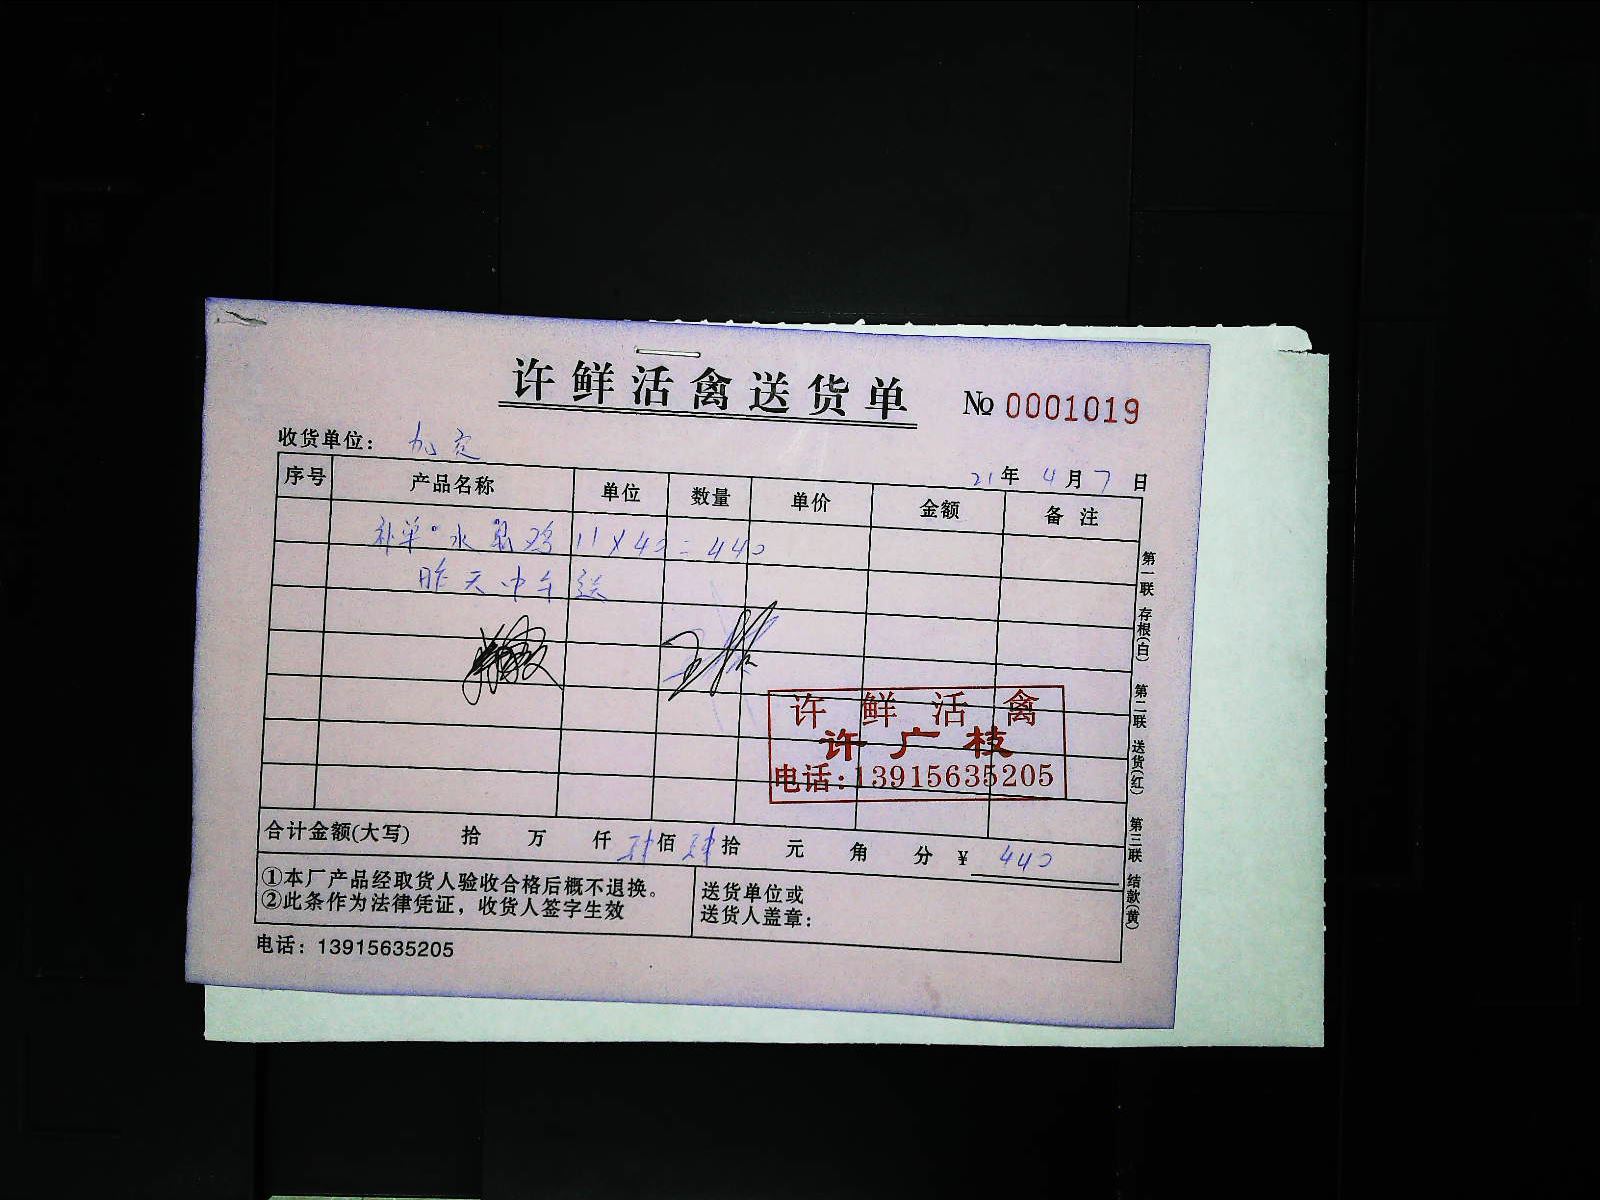 许鲜活禽送货单 № 0001019
收货单位：
21年 4月 7日
序号 产品名称 单位 数量 单价 金额 备注
补单 水 鸡 11×40=440
昨天中午送
许鲜活禽
许广枝
电话:13915635205
合计金额(大写) 拾 万 仟 肆佰 肆拾 元 角 分 ¥ 440
①本厂产品经取货人验收合格后概不退换。
②此条作为法律凭证，收货人签字生效
送货单位或
送货人盖章：
电话：13915635205
第一联 存根(白) 第二联 送货(红) 第三联 结款(黄)